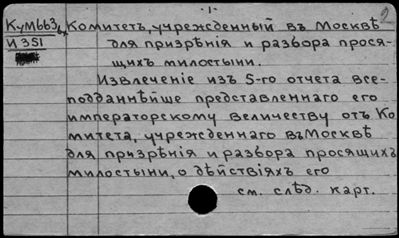 ·1·
2
КуМббЗ6, Комитетъ, учрежденный въ Москвѣ
И 351 для призрѣнія и разбора прося-
щихъ милостыни.
Извлеченіе изъ 5-го отчета все-
подданнѣйше представленнаго его
императорскому величеству отъ Ко
митета, учрежденнаго въ Москвѣ
для призрѣнія и разбора просящихъ
милостыни, о дѣйствіяхъ его
см. слѣд. карт.